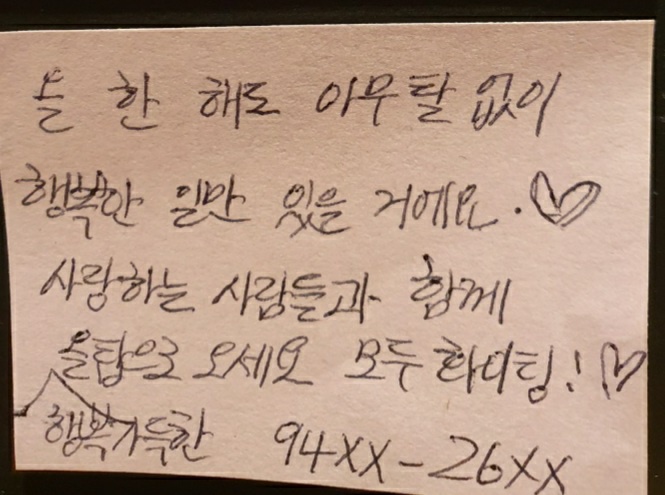 올 한 해도 아무 탈 없이
행복한 일만 있을 거에요. ♡
사랑하는 사람들과 함께
올탑으로 오세요 모두 화이팅! ♡
행복가득한 94XX-26XX